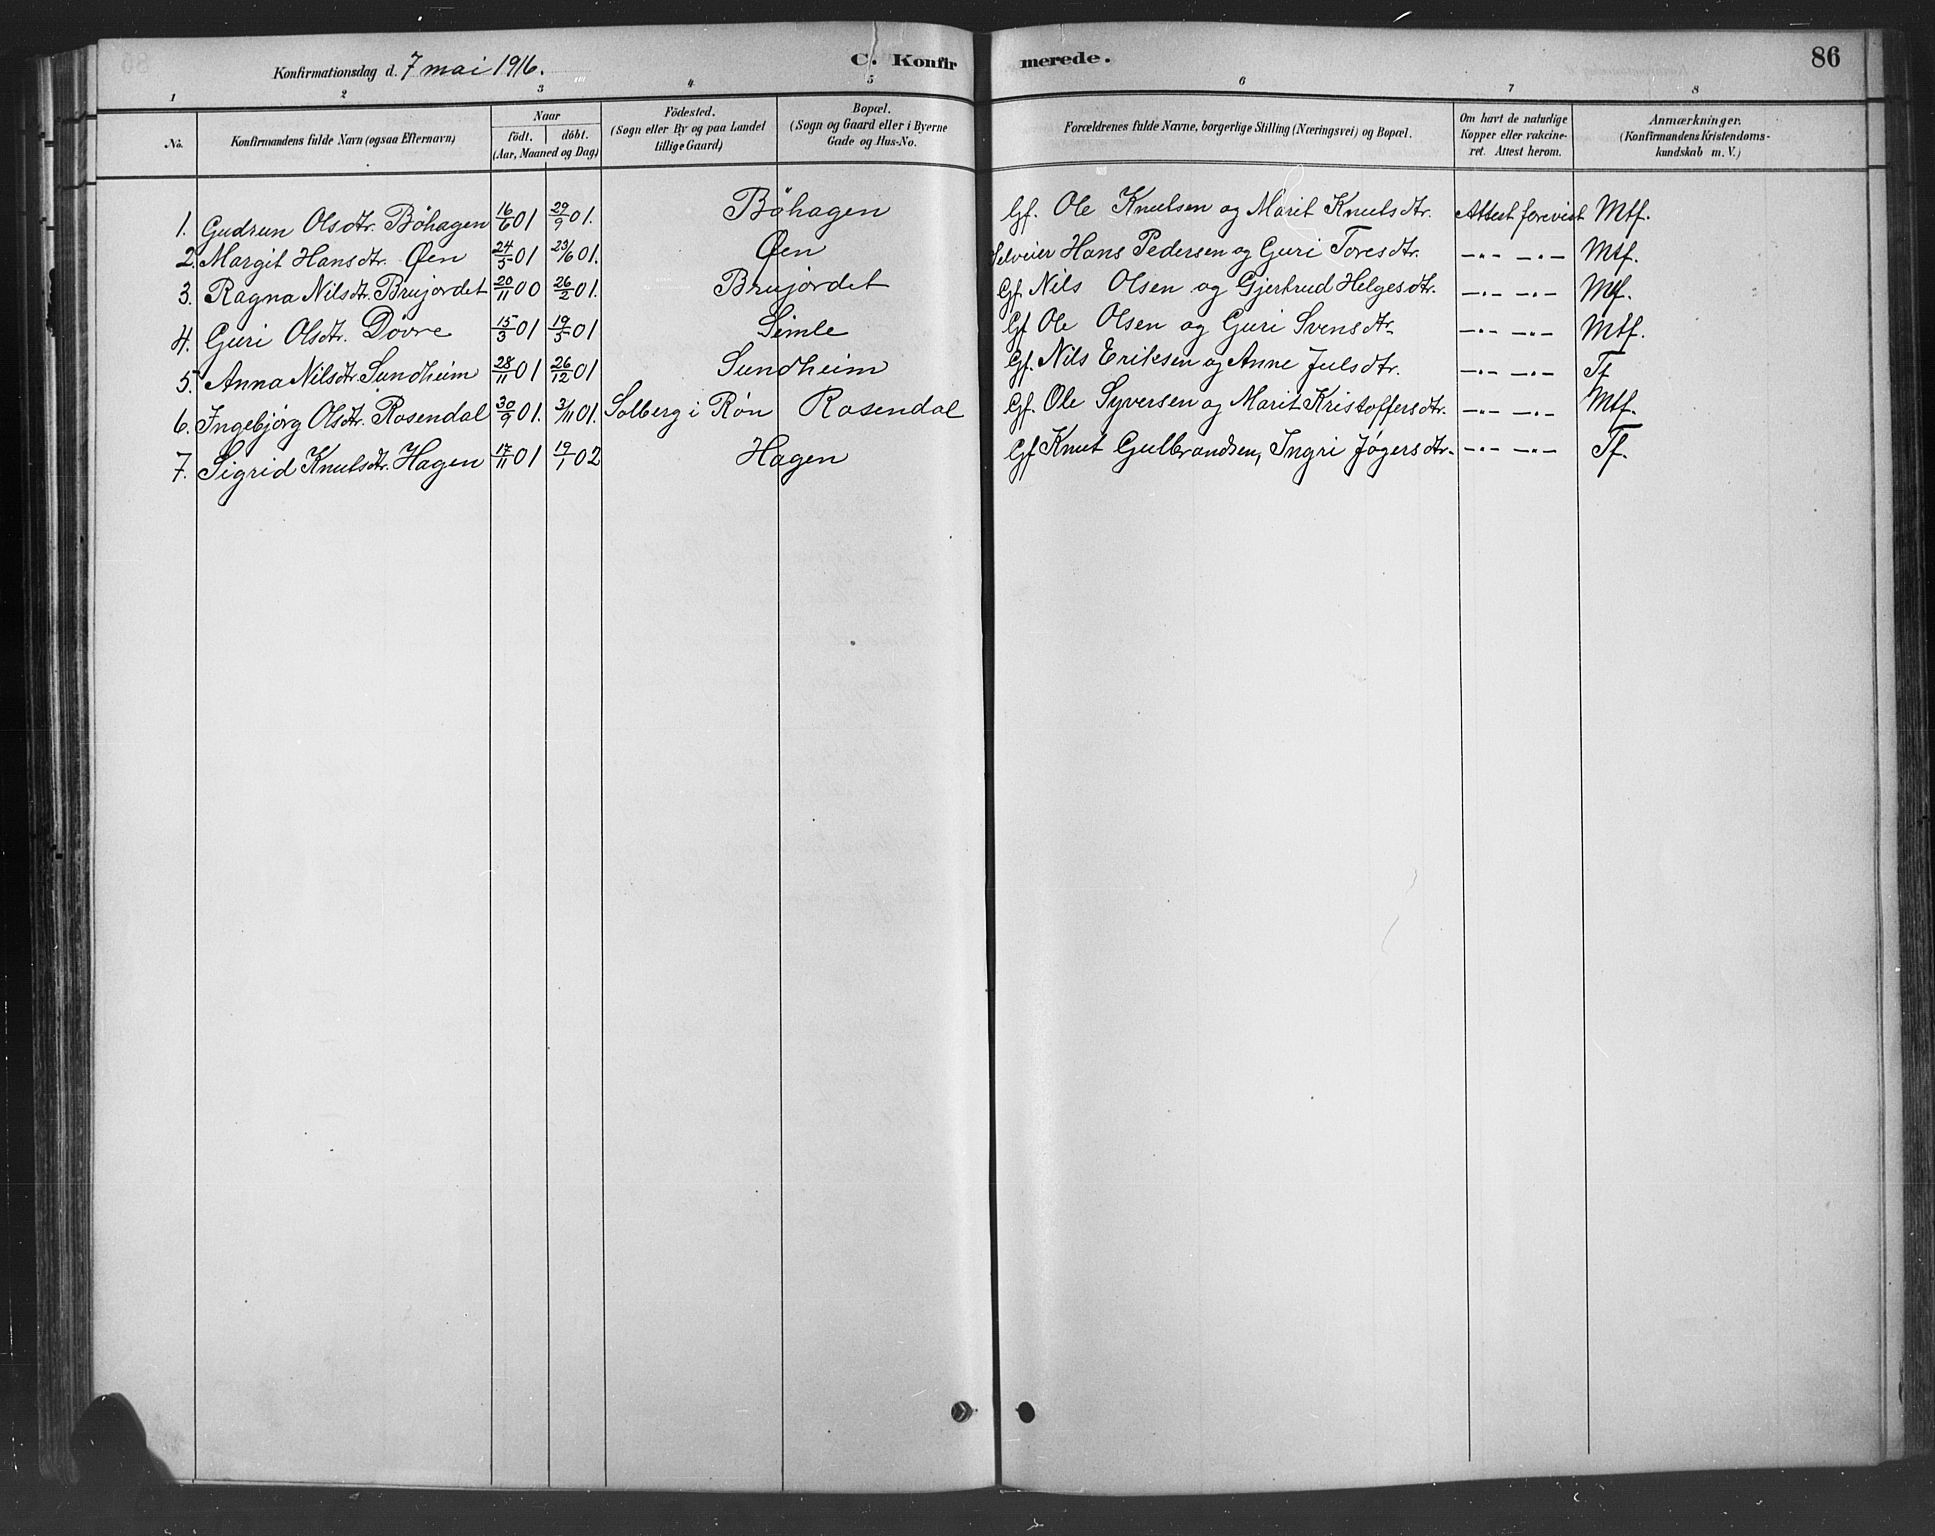 Konfirmationsdag d. 7 mai 1916. C. Konfirmerede. 86
1 2 3 4 5 6 7 8
No. Konfirmandens fulde Navn (ogsaa Efternavn) Naar födt. döbt. (Aar, Maaned og Dag) Födested. (Sogn eller By og paa Landet tillige Gaard) Bopæl. (Sogn og Gaard eller i Byerne Gade og Hus-No. Forældrenes fulde Navne, borgerlige Stilling (Næringsvei) og Bopæl. Om havt de naturlige Kopper eller vakcineret. Attest herom. Anmærkninger. (Konfirmandens Kristendomskundskab m. V.)
1. Gudrun Olsdtr. Böhagen 16/6 01 29/9 01. Böhagen Gf. Ole Knutsen og Marit Knutsdtr. Attest forevist Mtf.
2. Margit Hansdtr. Øen 24/5 01 23/6 01. Øen Selveier Hans Pedersen og Guri Toresdtr. —"— —"— Mtf.
3. Ragna Nilsdtr. Brujordet 20/11 00 26/2 01. Brujordet Gf. Nils Olsen og Gjertrud Helgesdtr. —"— —"— Mtf.
4. Guri Olsdtr. Dövre 15/3 01 19/5 01 Simle Gf Ole Olsen og Guri Svensdtr —"— —"— Mtf.
5. Anna Nilsdtr. Sundheim 28/11 01 26/12 01 Sundheim Gf. Nils Eriksen og Anne Julsdtr. —"— —"— Tf
6. Ingebjörg Olsdtr. Rosendal 30/9 01. 3/11 01. Solberg i Røn Rosendal Gf. Ole Syversen og Marit Kristoffersdtr. —"— —"— Mtf.
7. Sigrid Knutsdtr. Hagen 17/11 01 19/1 02 Hagen Gf Knut Gulbrandsen, Ingri Jøgersdtr. —"— —"— Tf.